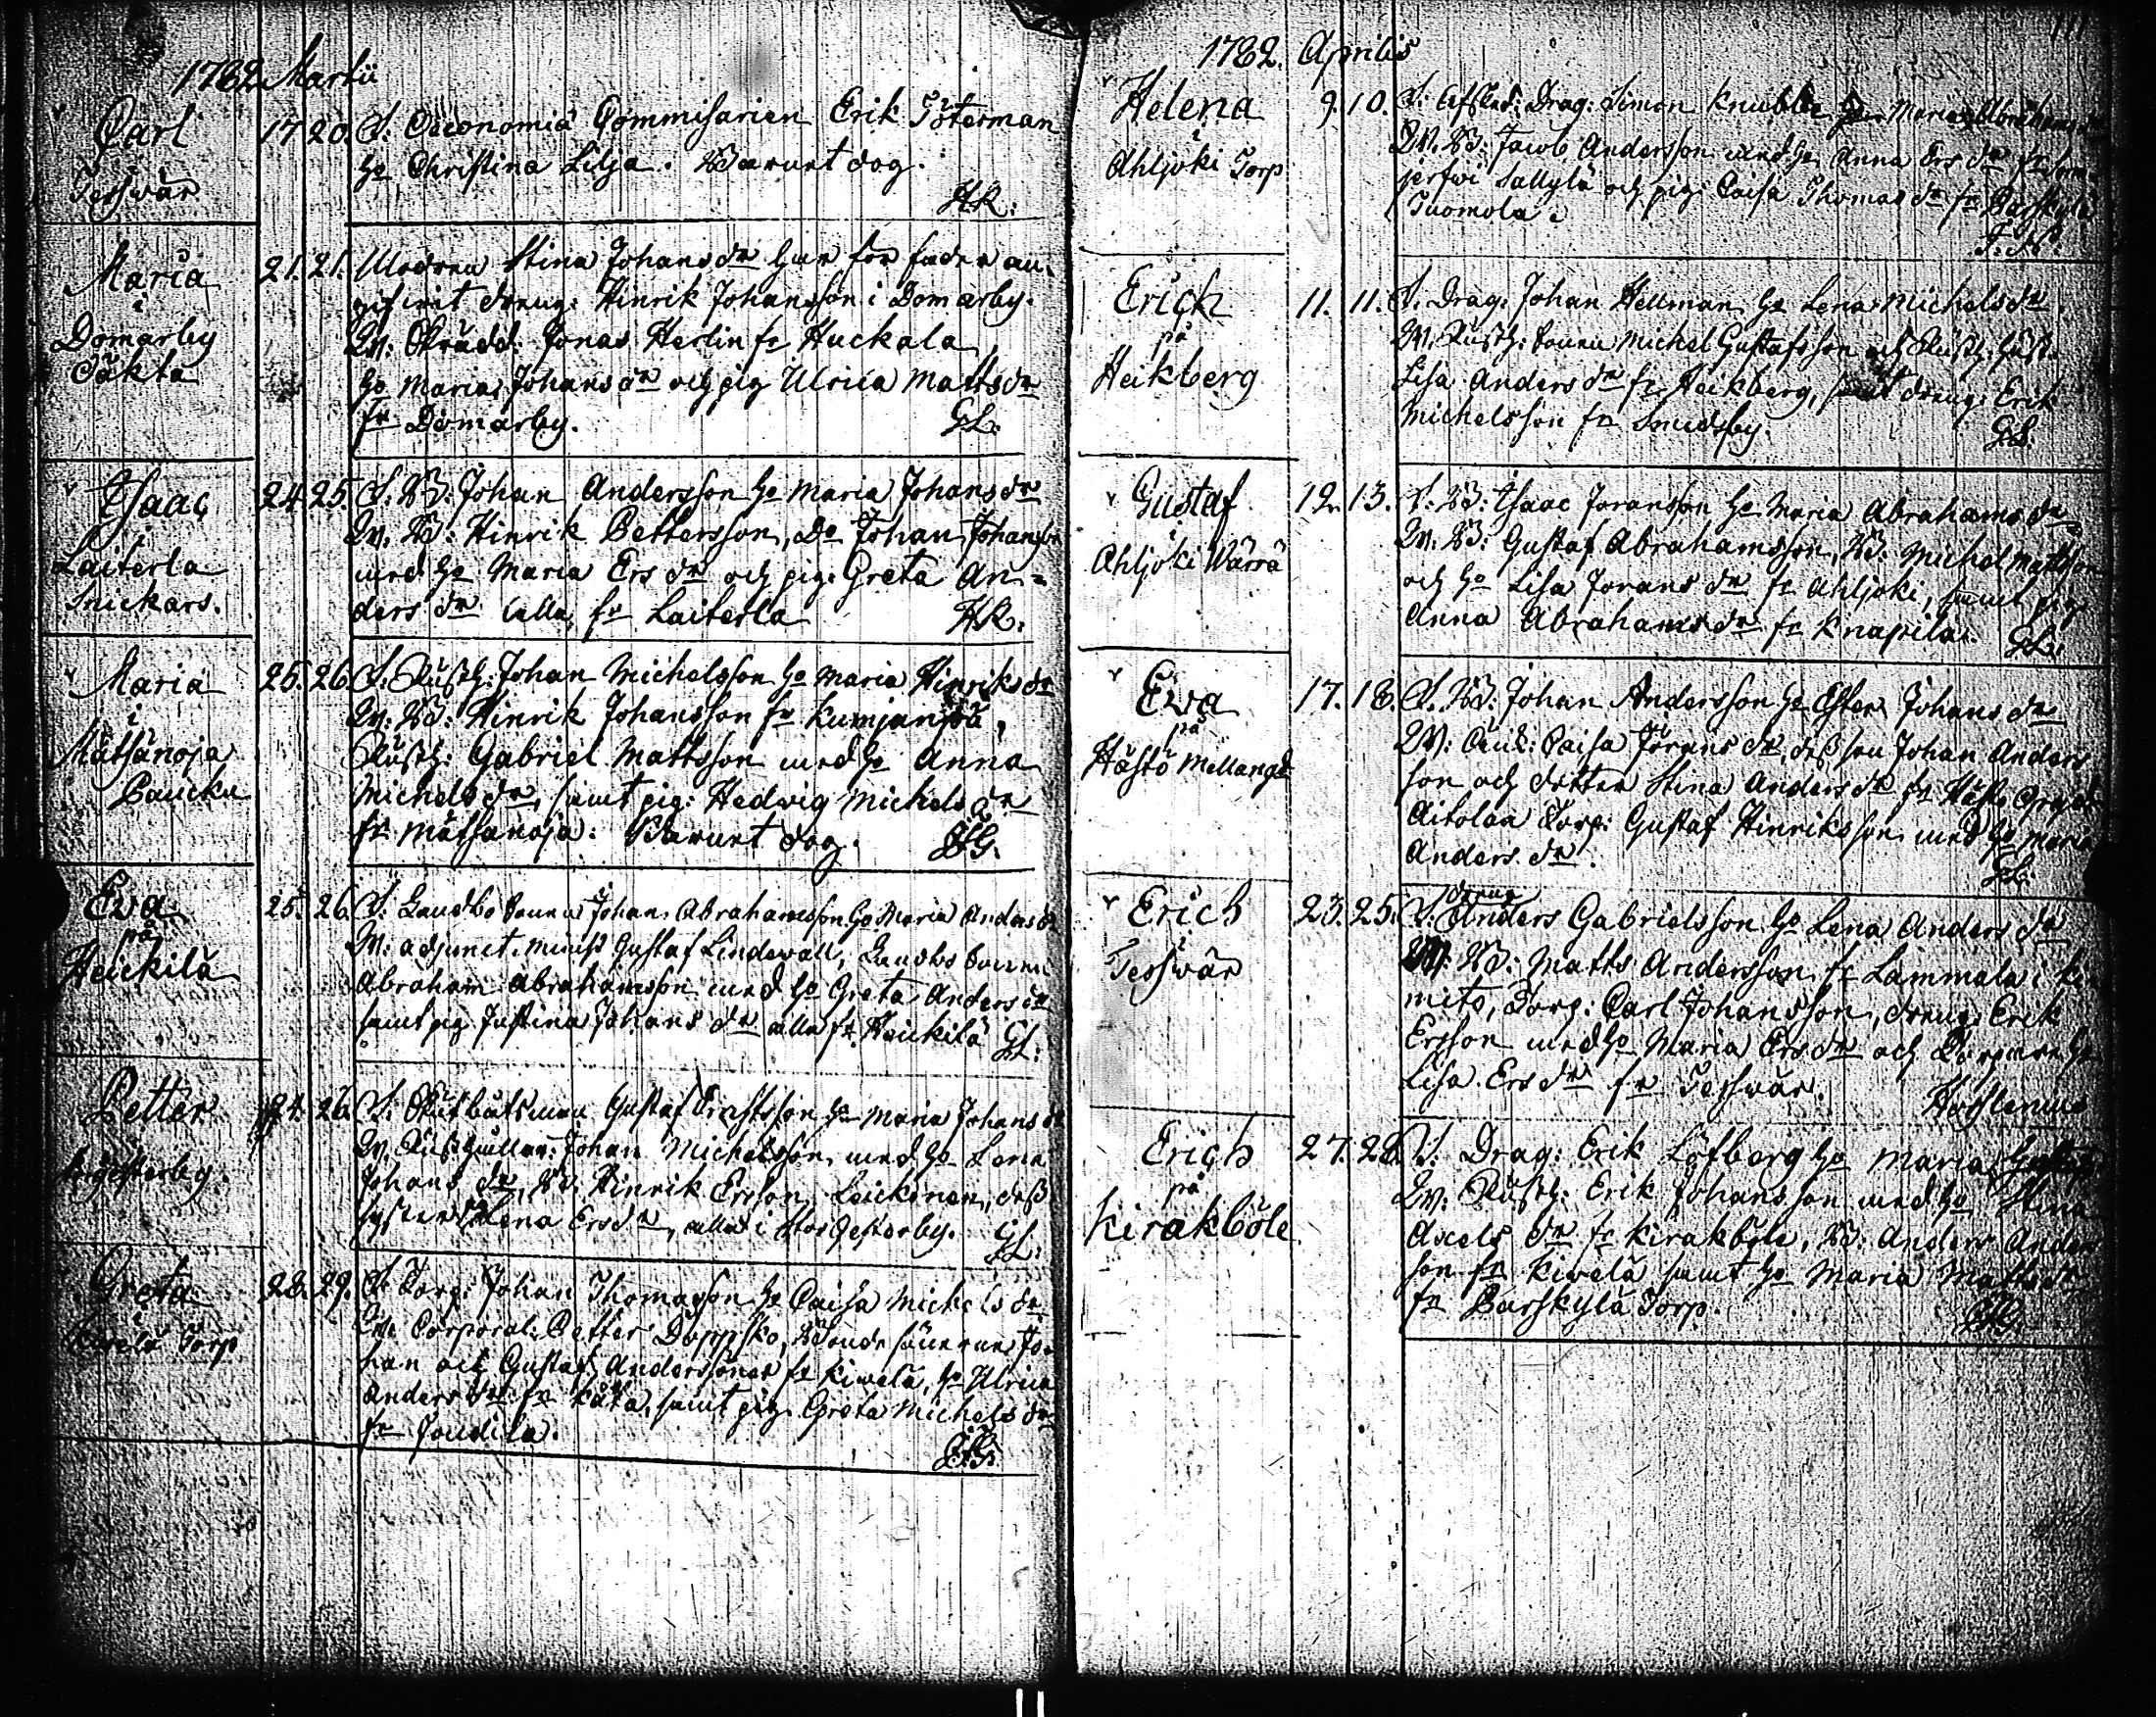 1782 Martii
Carl
i
Tessvär
17 20. F: Oeconomiæ Commissarien Erik Töterman
H:o Christina Lilja. Barnet dog.
HR:
Maria
i
Domarby
Täkta
21. 21. Modren Stina Johans dr har för fader an-
gifwit dreng: Hinrik Johansson i Domarby.
W: Skrädd: Jonas Herlin fr Huckala,
Ho Maria Johans dr och pig Ulrica Matts dr
fr Domarby. GL.
Isaac
i
Laiterla
Snickars.
24. 25. F: B: Johan Andersson Ho Maria Johans dr
W. B: Hinrik Pettersson, Do Johan Johansson
med Ho Maria Ers dr och pig: Greta An=
ders dr alla fr Laiterla HR:
Maria
i
Mätsänoja
Paucku
25. 26. F. Rusth: Johan Michelsson Ho Maria Hinriks dr
W: B: Hinrik Johansson fr Kumjanpää,
Rusth: Gabriel Mattsson med Ho Anna
Michels dr, samt pig: Hedwig Michels dr
fr Mätsänoja: Barnet dog.
Eva
på
Heickilä
25. 26. F: Landbo bonden Johan Abrahamsson Ho Maria Anders dr
W: adjunct. Gustaf Lindewall, Landbo bonden
Abraham Abrahamsson med Ho Greta Anders dr
samt pig Justina Johans dr alla fr Heickilä GL:
Petter
24. 26. F: Båtsman Gustaf Ho Maria Johans dr
W. Johan Michelsson med Ho Lena
Johans dr, B: Hinrik Ersson Leickonen, dess
syster Lena Ers dr, alla i Storgesterby. GL:
Greta
i
Kiwelä Torp
28. 29. F Torp: Johan Thomasson Ho Caisa Michels dr
W: Corporal: Petter Doppsko, Bonde sönerne Jo-
han och Gustaf Anderssöner fr Kiwelä, Ho Ulrica
Anders dr fr Käka, samt pig Greta Michels dr
fr
1782. Aprilis
Helena
i
Ahljoki Torp
9. 10. F: Afsked: Drag: Simon Knubbe Maria Abrahams dr
W. B: Jacob Andersson med Ho Anna Ers dr fr
jerfwi Sallylä och pig: Caisa Thomas dr fr Barskylä
Tuomola
Erich
på
Heikberg
11. 11. F. Drag: Johan Hellman Ho Lena Michels dr
W. Rusth: bonden Michel Gustafsson och Rusth: hust:
Lisa Anders dr fr Heikberg, samt dreng: Erik
Michelsson fr Smedsby. GL.
Gustaf
i
Ahljoki Wärrä
12. 13. F: B: Isaac Joransson Ho Maria Abrahams dr
W. B: Gustaf Abrahamsson, B: Michel Mattsson
och Ho Lisa Jorans dr fr Ahljoki, samt pig:
Anna Abrahams dr fr Knapila. GL:
Ewa
på
Hästö Mellangd
17. 18. F. B: Johan Andersson Ho Ester Johans dr
W: Enk: Caisa Jörans dr, dess son Johan Anders
son och dotter Stina Anders dr fr Hästö
Aitolaa Torp: Gustaf Hinriksson med Ho Maria
Anders dr. GL:
Erich
i
Tessvär
23. 25. F. dreng Anders Gabrielsson Ho Lena Anders dr
W: B: Matts Andersson fr Lammala i Ki
mito, Torp: Carl Johansson, dreng Erik
Ersson med Ho Maria Ers dr och Torparen Ho
Lisa Ers dr fr Tessvär.
Erich
på
Kirakböle
27. 28. F. Drag: Erik Löfberg Ho Maria
W: Rusth: Erik Johansson med Ho Stina
Axels dr fr Kirakböle, B: Anders Anders
son fr Kiwelä samt Ho Maria Matts dr
fr Barskylä Torp.